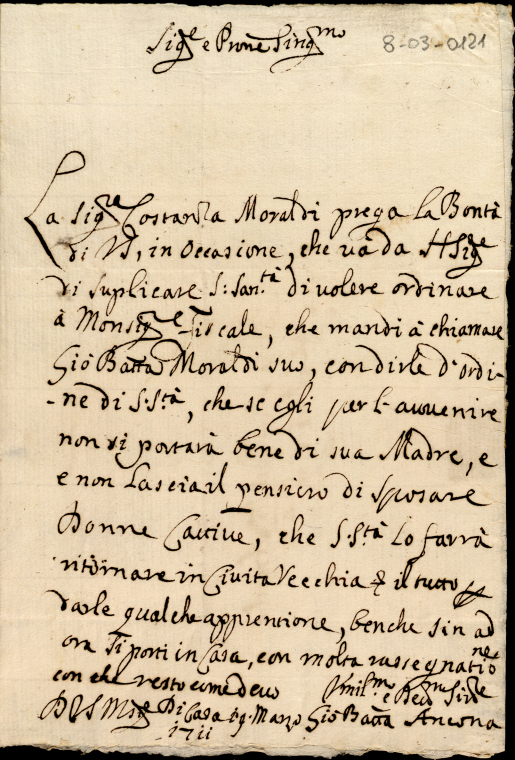 Sig.re e Prone Sing.mo
8-03-0121
La Sig.re Costanza Moraldi prega la Bontà
di VS, in occasione, che và da
di suplicare S: San.tà di volere ordinare
à Monsig.re Fiscale, che mandi à chiamare
Giô Batta Moraldi suo, con dirle d'ordi-
-ne di S. S.tà, che se egli per l'avvenire
non si portarà bene di sua Madre, e
e non Lascia il pensiero di sposare
Donne Cattive, che S. S.tà Lo farrà
ritornare in Civita Vecchia & il tutto p
darle qualche apprentione, benche sin ad
ora si porti in Casa, con molta rassegnatio.ne
con che resto come devo
Umil.mo e Dev.mo Sre
Di VS M Di Casa 19. Marzo Giô Batta Ancona
1711